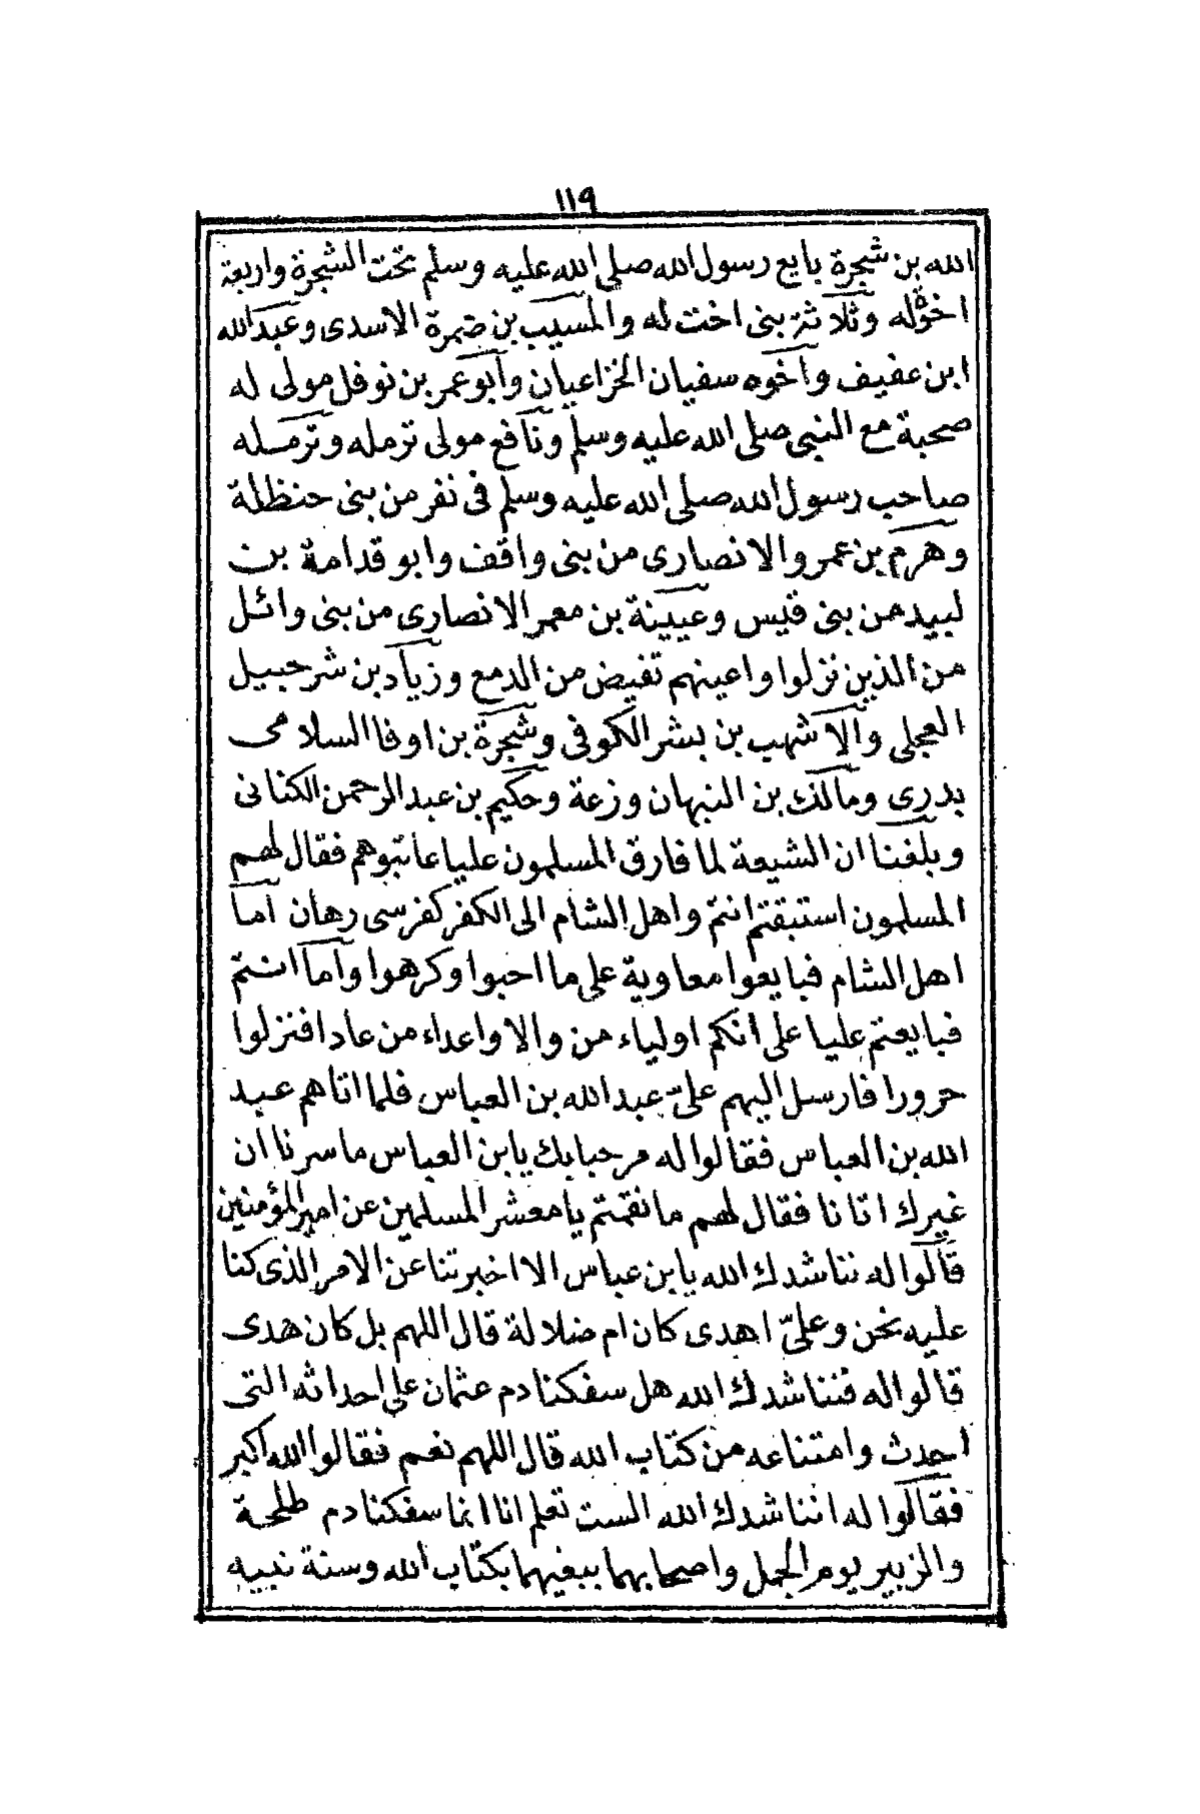 ١١٩
الله بن شجرة بايع رسول الله صلى الله عليه وسلم تحت الشجرة واربعة
اخوة له وثلاثة بنى اخت له والمسيب بن ضمرة الاسدى وعبد الله
ابن عفيف وآخوه سفيان الخزاعيان وآبو عمر بن نوفل مولى له
صحبة مع النبى صلى الله عليه وسلم ونافع مولى ترمله وترمله
صاحب رسول الله صلى الله عليه وسلم فى نفر من بنى حنظلة
وهرم بن عمر والانصارى من بنى واقف وابو قدامة بن
لبيد من بنى قيس وعيينة بن معمر الانصارى من بنى وائل
من الذين نزلوا واعينهم تفيض من الدمع وزياد بن شرحبيل
العجلى والاشهب بن بشر الكوفى وشجرة بن اوفا السلامى
بدرى ومالك بن النبهان وزعة وحكيم بن عبد الرحمن الكنانى
وبلغنا ان الشيعة لما فارق المسلمون عليا عاتبوهم فقال لهم
المسلمون استبقتم انتم واهل الشام الى الكفر كفرسى رهان آما
اهل الشام فبايعوا معاوية على ما احبوا وكرهوا وآما انتم
فبايعتم عليا على انكم اولياء من والا واعداء من عادا فنزلوا
حرورا فارسل اليهم علىّ عبد الله بن العباس فلما اتاهم عبد
الله بن العباس فقالوا له مرحبا بك يابن العباس ما سرنا ان
غيرك اتانا فقال لهم ما نقمتم يا معشر المسلمين عن امير المؤمنين
قالوا له نناشدك الله يابن عباس الا اخبرتنا عن الامر الذى كنا
عليه نحن وعلىّ اهدى كان ام ضلالة قال اللهم بل كان هدى
قالوا له فنناشدك الله هل سفكنا دم عثمان على احداثه التى
احدث وامتناعه من كتاب الله قال اللهم نعم فقالوا الله اكبر
فقالوا له اننا شدك الله الست تعلم انا انما سفكنا دم طلحة
والزبير يوم الجمل واصحابهما ببغيهما بكتاب الله وسنة نبيه